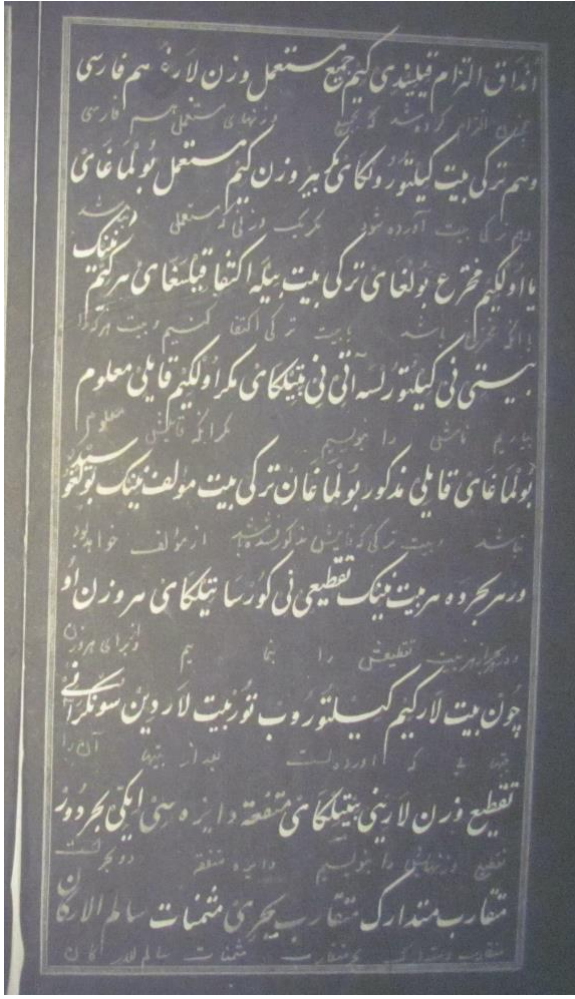 آنداق التزام قیلیندی کیم جمیع مستعمل وزن لارغه هم فارسی
چنین التزام کرده شد که بجمیع وزنهای مستعمل هم فارسی
وهم ترکی بیت کیلتورولکای مکر بیر وزن کیم مستعمل بولماغای
وهم ترکی بیت آورده شود مکر یک وزنی که مستعمل نباشد
یا اولکیم مخترع بولغای ترکی بیت بیله اکتفا قیلیغای هر کیم نینک
یا آنکه مخترع باشد به بیت ترکی اکتفا کنیم و بیت هر که را
بیتی نی کیلتورلسه آتی نی بیتیلکای مکر اولکیم قایلی معلوم
بیاریم نامش را بنویسیم مکر آنکه قایلش معلوم
بولماغای قایلی مذکور بولماغان ترکی بیت مولف نینک بولغوسیدر
نباشد و بیت ترکی که قایلش مذکور نشده باشد از مؤلف خواهد بود
و هر بحرده هر بیت نینک تقطیعی نی کورساتیلکای هر وزن اوچون
در هر بحر از هر بیت تقطیعش را بنماییم از برای هر وزن
بیت لار کیم کیلتوروب تور بیت لاردین سونکرا آنی
بیتها ئی که آورده است بعد از بیتها آن را
تقطیع وزن لارینی بیتیلکای متفقه دایره سی ایکی بحر دور
تقطیع وزنهایش را بنویسیم دایره متفقه دو بحر است
متقارب متدارک متقارب بحری مثمنات سالم الارکان
متقارب و متدارک بحر متقارب مثمنات سالم الارکان